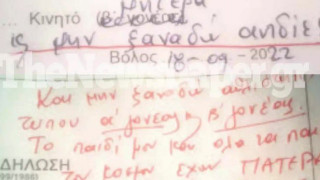 Κινητό Μητέρα
ς μην ξαναδώ αηδίε
Βόλος 18-09-2022
TheNewspaper.gr
Και μην ξαναδώ αηδίες
τύπου α' γονέας β' γονέας.
Το παιδί μου και όλα τα παι
ΔΗΛΩΣΗ
του κόσμου έχουν ΠΑΤΕΡΑ